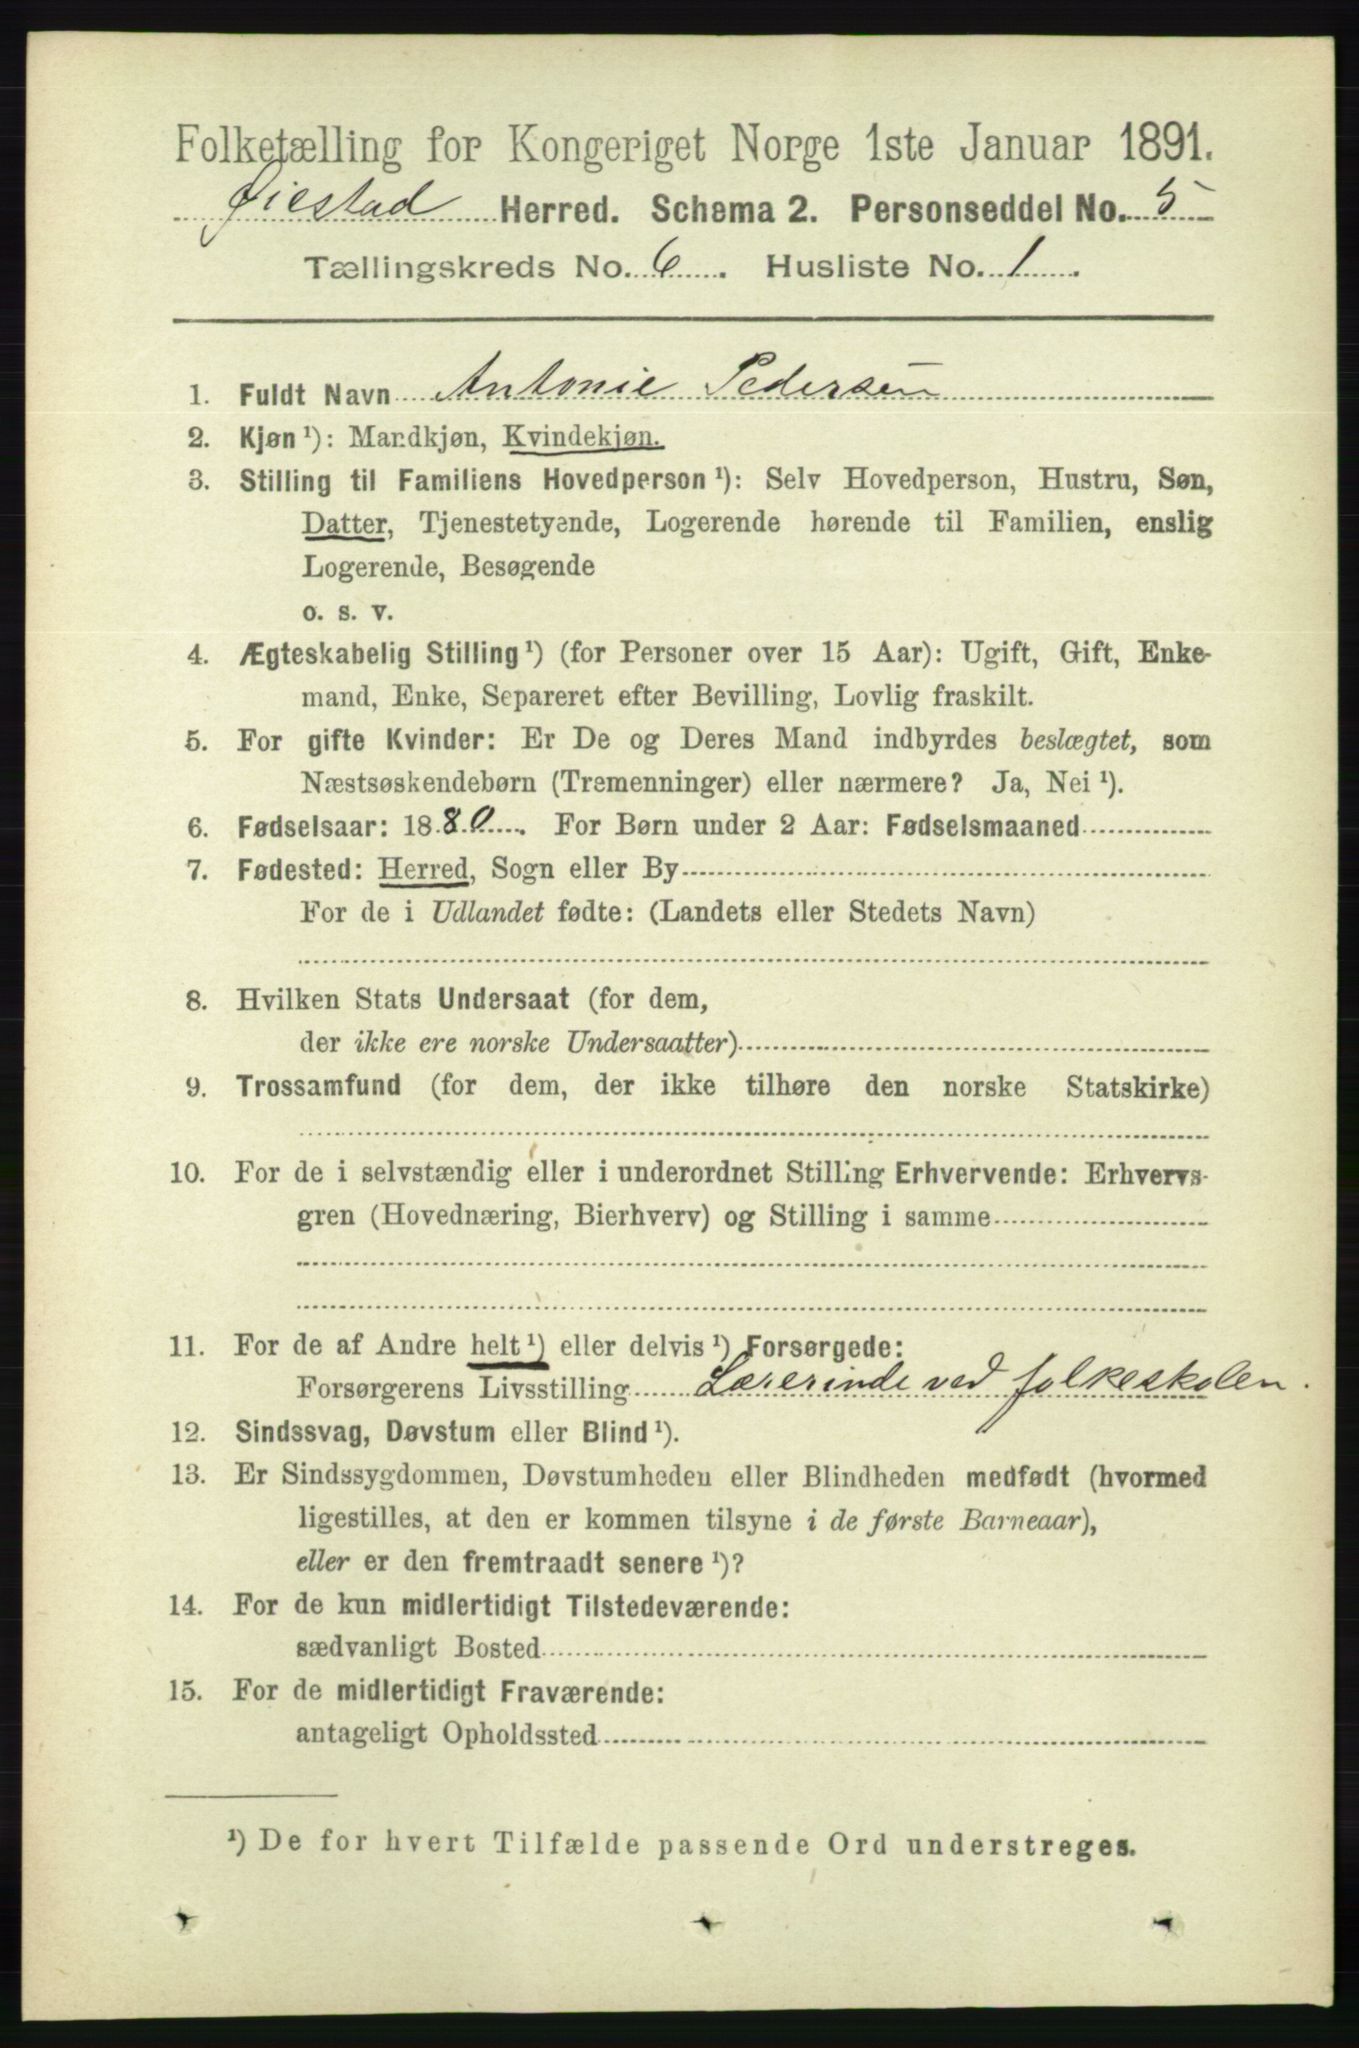 Folketælling for Kongeriget Norge 1ste Januar 1891.
Øiestad Herred. Schema 2. Personseddel No. 5
Tællingskreds No. 6. Husliste No. 1.
1. Fuldt Navn Antonie Pedersen
2. Kjøn ¹): Mandkjøn, Kvindekjøn.
3. Stilling til Familiens Hovedperson ¹): Selv Hovedperson, Hustru, Søn,
Datter, Tjenestetyende, Logerende hørende til Familien, enslig
Logerende, Besøgende
o. s. v.
4. Ægteskabelig Stilling ¹) (for Personer over 15 Aar): Ugift, Gift, Enke-
mand, Enke, Separeret efter Bevilling, Lovlig fraskilt.
5. For gifte Kvinder: Er De og Deres Mand indbyrdes beslægtet, som
Næstsøskendebørn (Tremenninger) eller nærmere? Ja, Nei ¹).
6. Fødselsaar: 1880. For Børn under 2 Aar: Fødselsmaaned
7. Fødested: Herred, Sogn eller By
For de i Udlandet fødte: (Landets eller Stedets Navn)
8. Hvilken Stats Undersaat (for dem,
der ikke ere norske Undersaatter)
9. Trossamfund (for dem, der ikke tilhøre den norske Statskirke)
10. For de i selvstændig eller i underordnet Stilling Erhvervende: Erhvervs-
gren (Hovednæring, Bierhverv) og Stilling i samme
11. For de af Andre helt ¹) eller delvis ¹) Forsørgede:
Forsørgerens Livsstilling Lærerinde ved folkeskolen.
12. Sindssvag, Døvstum eller Blind ¹).
13. Er Sindssygdommen, Døvstumheden eller Blindheden medfødt (hvormed
ligestilles, at den er kommen tilsyne i de første Barneaar),
eller er den fremtraadt senere ¹)?
14. For de kun midlertidigt Tilstedeværende:
sædvanligt Bosted
15. For de midlertidigt Fraværende:
antageligt Opholdssted
¹) De for hvert Tilfælde passende Ord understreges.